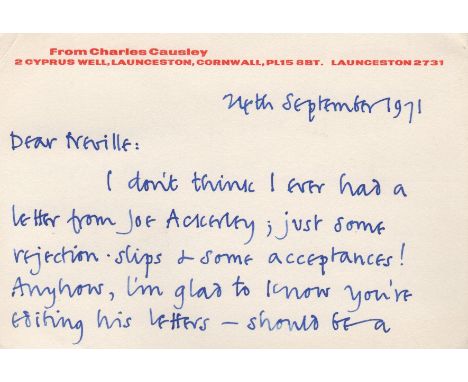 From Charles Causley
2 CYPRUS WELL, LAUNCESTON, CORNWALL, PL15 8BT. LAUNCESTON 2731
24th September 1971
Dear Neville:
I don't think I ever had a
letter from Joe Ackerley; just some
rejection-slips & some acceptances!
Anyhow, I'm glad to know you're
editing his letters — should be a